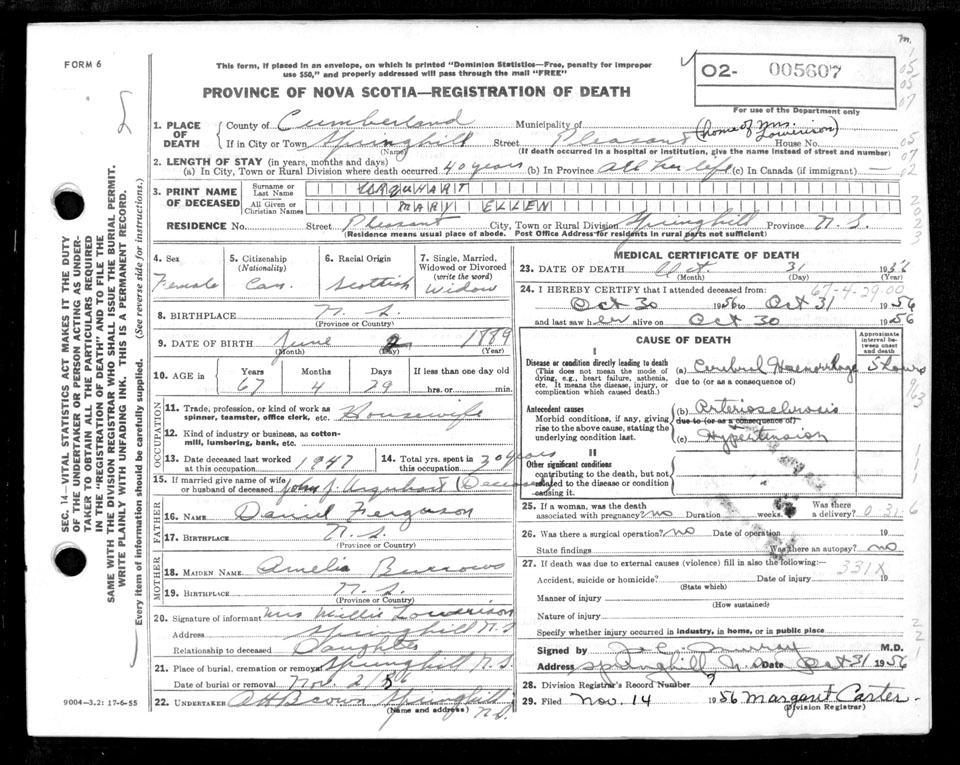 FORM 6
This form, if placed in an envelope, on which is printed "Dominion Statistics—Free, penalty for improper
use $50," and properly addressed will pass through the mail "FREE"
02- 005607
For use of the Department only
PROVINCE OF NOVA SCOTIA—REGISTRATION OF DEATH
1. PLACE OF DEATH
County of Cumberland Municipality of (home of Mrs. Lowerison)
If in City or Town Springhill Street Pleasant House No.
(Name) (If death occurred in a hospital or institution, give the name instead of street and number)
2. LENGTH OF STAY (in years, months and days)
(a) In City, Town or Rural Division where death occurred 40 years (b) In Province All her life (c) In Canada (if immigrant) —
3. PRINT NAME OF DECEASED
Surname or Last Name URQUHART
All Given or Christian Names MARY ELLEN
RESIDENCE No. Street Pleasant City, Town or Rural Division Springhill Province N.S.
(Residence means usual place of abode. Post Office Address for residents in rural parts not sufficient)
4. Sex Female
5. Citizenship (Nationality) Can.
6. Racial Origin Scottish
7. Single, Married, Widowed or Divorced (write the word) Widow
8. BIRTHPLACE N.S.
(Province or Country)
9. DATE OF BIRTH June 2 1889
(Month) (Day) (Year)
10. AGE in Years Months Days If less than one day
67 4 29 hrs. or min.
OCCUPATION
11. Trade, profession, or kind of work as spinner, teamster, office clerk, etc. Housewife
12. Kind of industry or business, as cotton-mill, lumbering, bank, etc.
13. Date deceased last worked at this occupation 1947
14. Total yrs. spent in this occupation 30 years
15. If married give name of wife or husband of deceased John J. Urquhart (Deceased)
FATHER
16. NAME Daniel Ferguson
17. BIRTHPLACE N.S.
(Province or Country)
MOTHER
18. MAIDEN NAME Amelia Burrows
19. BIRTHPLACE N.S.
(Province or Country)
20. Signature of informant Mrs Millie Lowerison
Address Springhill N.S
Relationship to deceased Daughter
21. Place of burial, cremation or removal Springhill N.S.
Date of burial or removal Nov. 2/56
22. UNDERTAKER A H Brown Springhill N.S.
(Name and address)
MEDICAL CERTIFICATE OF DEATH
23. DATE OF DEATH Oct. 31 1956
(Month) (Day) (Year)
67-4-29.00
24. I HEREBY CERTIFY that I attended deceased from:
Oct 30 1956 to Oct 31 1956
and last saw her alive on Oct 30 1956
CAUSE OF DEATH
Approximate interval between onset and death
I
Disease or condition directly leading to death
(This does not mean the mode of dying, e.g., heart failure, asthenia, etc. It means the disease, injury, or complication which caused death.)
(a) Cerebral Haemorrhage 5 hours
due to (or as a consequence of)
Antecedent causes
Morbid conditions, if any, giving rise to the above cause, stating the underlying condition last.
(b) Arteriosclerosis
due to (or as a consequence of)
(c) Hypertension
II
Other significant conditions
contributing to the death, but not related to the disease or condition causing it.
25. If a woman, was the death associated with pregnancy? no Duration weeks. Was there a delivery? 0 31 6
26. Was there a surgical operation? no Date of operation 19
State findings Was there an autopsy? no
27. If death was due to external causes (violence) fill in also the following:— 331X
Accident, suicide or homicide? Date of injury 19
(State which)
Manner of injury
(How sustained)
Nature of injury
Specify whether injury occurred in industry, in home, or in public place
Signed by Murray M.D.
Address Springhill N.S. Date Oct 31 1956
28. Division Registrar's Record Number
29. Filed Nov. 14 1956 Margaret Carter
(Division Registrar)
SEC. 14—VITAL STATISTICS ACT MAKES IT THE DUTY
OF THE UNDERTAKER OR PERSON ACTING AS UNDER-
TAKER TO OBTAIN ALL THE PARTICULARS REQUIRED
IN THE "REGISTRATION OF DEATH" AND TO FILE THE
SAME WITH THE DIVISION REGISTRAR WHO SHALL ISSUE THE BURIAL PERMIT.
WRITE PLAINLY WITH UNFADING INK. THIS IS A PERMANENT RECORD.
Every item of information should be carefully supplied. (See reverse side for instructions.)
9004—3.2: 17-6-55